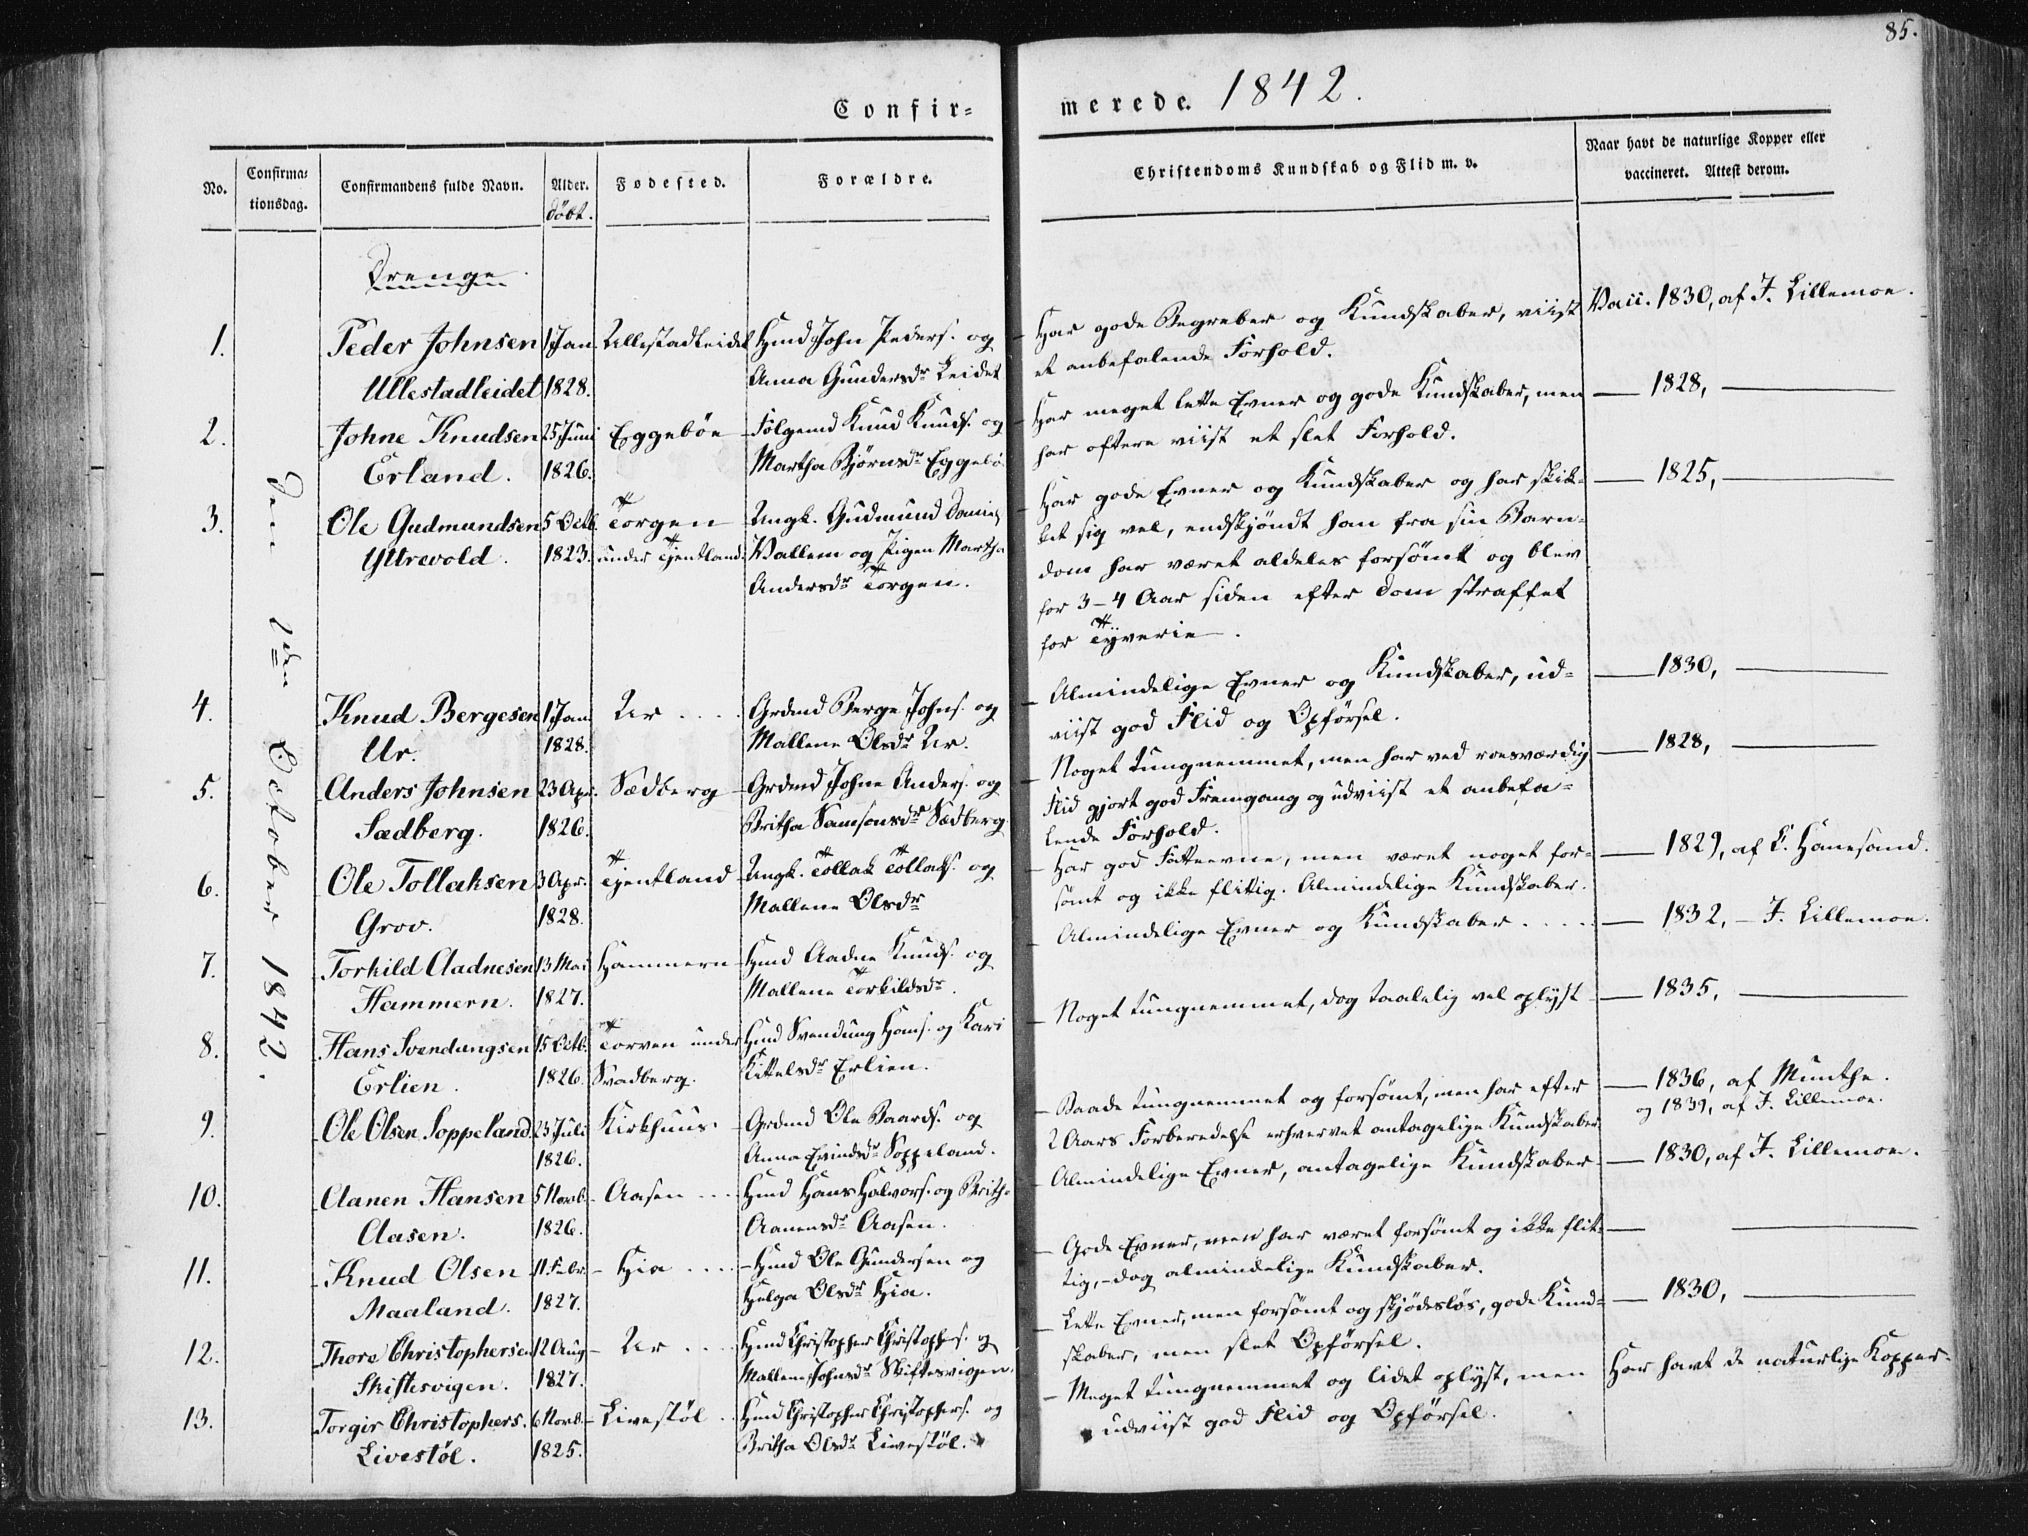 85.
Confir=
merede. 1842.
No.
Confirma=
tionsdag.
Confirmandens fulde Navn.
Alder.
døbt.
Fødested.
Forældre.
Christendoms Kundskab og Flid m. v.
Naar havt de naturlige Kopper eller
vaccineret. Attest derom.
den 2den October 1842.
Drenge.
1.
Peder Johnsen
Ullestadleidet
1 Jan.
1828.
Ullestadleidet
Hmd John Peders. og
Anna Gundersdr Leidet
Har gode Begreber og Kundskaber, viist
et anbefalende Forhold.
Vacc. 1830, af J. Lillemoe.
2.
Johne Knudsen
Erland.
25 Juni
1826.
Eggebøe
Følgemd Knud Knuds. og
Martha Bjørnsdr Eggebø
Har meget lette Evner og gode Kundskaber, men
har oftere viist et slet Forhold.
— 1828, —
3.
Ole Gudmundsen
Yttrevold.
5 Octb.
1823.
Torgen
under Tjentland.
Ungk. Gudmund Daniels
Vallem og Pigen Martha
Andersdr Torgen.
Har gode Evner og Kundskaber og har skik-
ket sig vel, endskjøndt han fra sin Barn-
dom har været aldeles forsømt og blev
for 3–4 Aar siden efter Dom straffet
for Tyverie.
— 1825, —
4.
Knud Bergesen
Ur.
1 Jan.
1828.
Ur . . . .
Grdmd Berge Johns. og
Mallene Olsdr Ur.
Almindelige Evner og Kundskaber, ud-
viist god Flid og Opførsel.
— 1830, —
5.
Anders Johnsen
Sædberg.
23 Apr.
1826.
Sædberg
Grdmd Johne Anders. og
Britha Samsonsdr Sædberg.
Noget tungnemmet, men har ved roesværdig
Flid gjort god Fremgang og udviist et anbefa=
lende Forhold.
— 1828, —
6.
Ole Tollaksen
Grov.
3 Apr.
1828.
Tjentland
Ungk. Tollak Tollaks. og
Mallene Olsdr
Har god Fatteevne, men været noget for-
sømt og ikke flittig. Almindelige Kundskaber.
— 1829, af L. Hanesand.
7.
Torkild Aadnesen
Hammern.
13 Mai
1827.
Hammern
Hmd Aadne Knuds. og
Mallene Torkildsdr.
Almindelige Evner og Kundskaber . . . .
— 1832, – J. Lillemoe.
8.
Hans Svendungsen
Erlien.
15 Octb.
1826.
Torven under
Svadberg.
Hmd Svendung Hans. og Kari
Kittelsdr Erlien.
Noget tungnemmet, dog taalelig vel oplyst
— 1835, —
9.
Ole Olsen Soppeland.
23 Juli
1826.
Kirkhuus.
Grdmd Ole Baards. og
Anna Evindsdr Soppeland.
Baade tungnemmet og forsømt, men har efter
2 Aars Forberedelse erhvervet antagelige Kundskaber
— 1836, af Munthe.
og 1839, af J. Lillemoe.
10.
Aanen Hansen
Aasen.
5 Novb.
1826.
Aasen . . .
Hmd Hans Halvors. og Britha
Aanensdr Aasen.
Almindelige Evner, antagelige Kundskaber
— 1830, af J. Lillemoe.
11.
Knud Olsen
Maaland.
11 Febr.
1827.
Hia . . . .
Hmd Ole Gundersen og
Helga Olsdr Hia.
Gode Evner, men har været forsømt og ikke flit-
tig, – dog almindelige Kundskaber.
— —
12.
Thore Christophersen
Skiftesvigen.
12 Aug
1827.
Ur . . . .
Hmd Christopher Christophers. og
Mallene Johnsdr Skiftesvigen.
Lette Evner, men forsømt og skjødesløs, gode Kund=
skaber, men slet Opførsel.
— 1830, —
13.
Torgir Christophers.
Livestøl.
6 Novb.
1825.
Livestøl . .
Hmd Christopher Christophers. og
Britha Olsdr Livestøl.
Meget tungnemmet og lidet oplyst, men
udviist god Flid og Opførsel.
Har havt de naturlige Kopper.